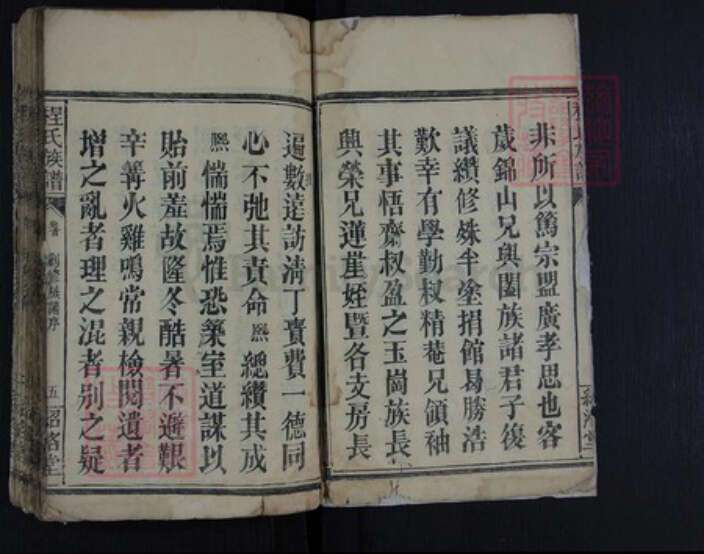 程氏族譜
非所以篤宗盟廣孝思也客
歲錦山兄與闔族諸君子復
議纘修殊半塗捐館曷勝浩
歎幸有學勤叔精菴兄領袖
其事悟齋叔盈之玉崗族長
與榮兄蓮崖姪暨各支房長
遍數遠訪清丁費一德同
心不弛其責命熙總纘其成
熙惴惴焉惟恐築室道謀以
貽前羞故隆冬酷暑不避艱
辛篝火雞鳴常親檢閱遺者
增之亂者理之混者別之疑
程氏族譜 卷首 序 五 堂